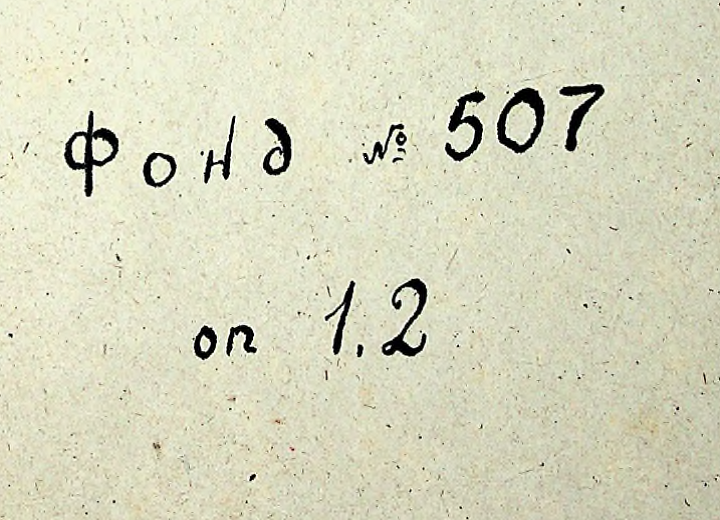 Фонд № 507
оп 1.2